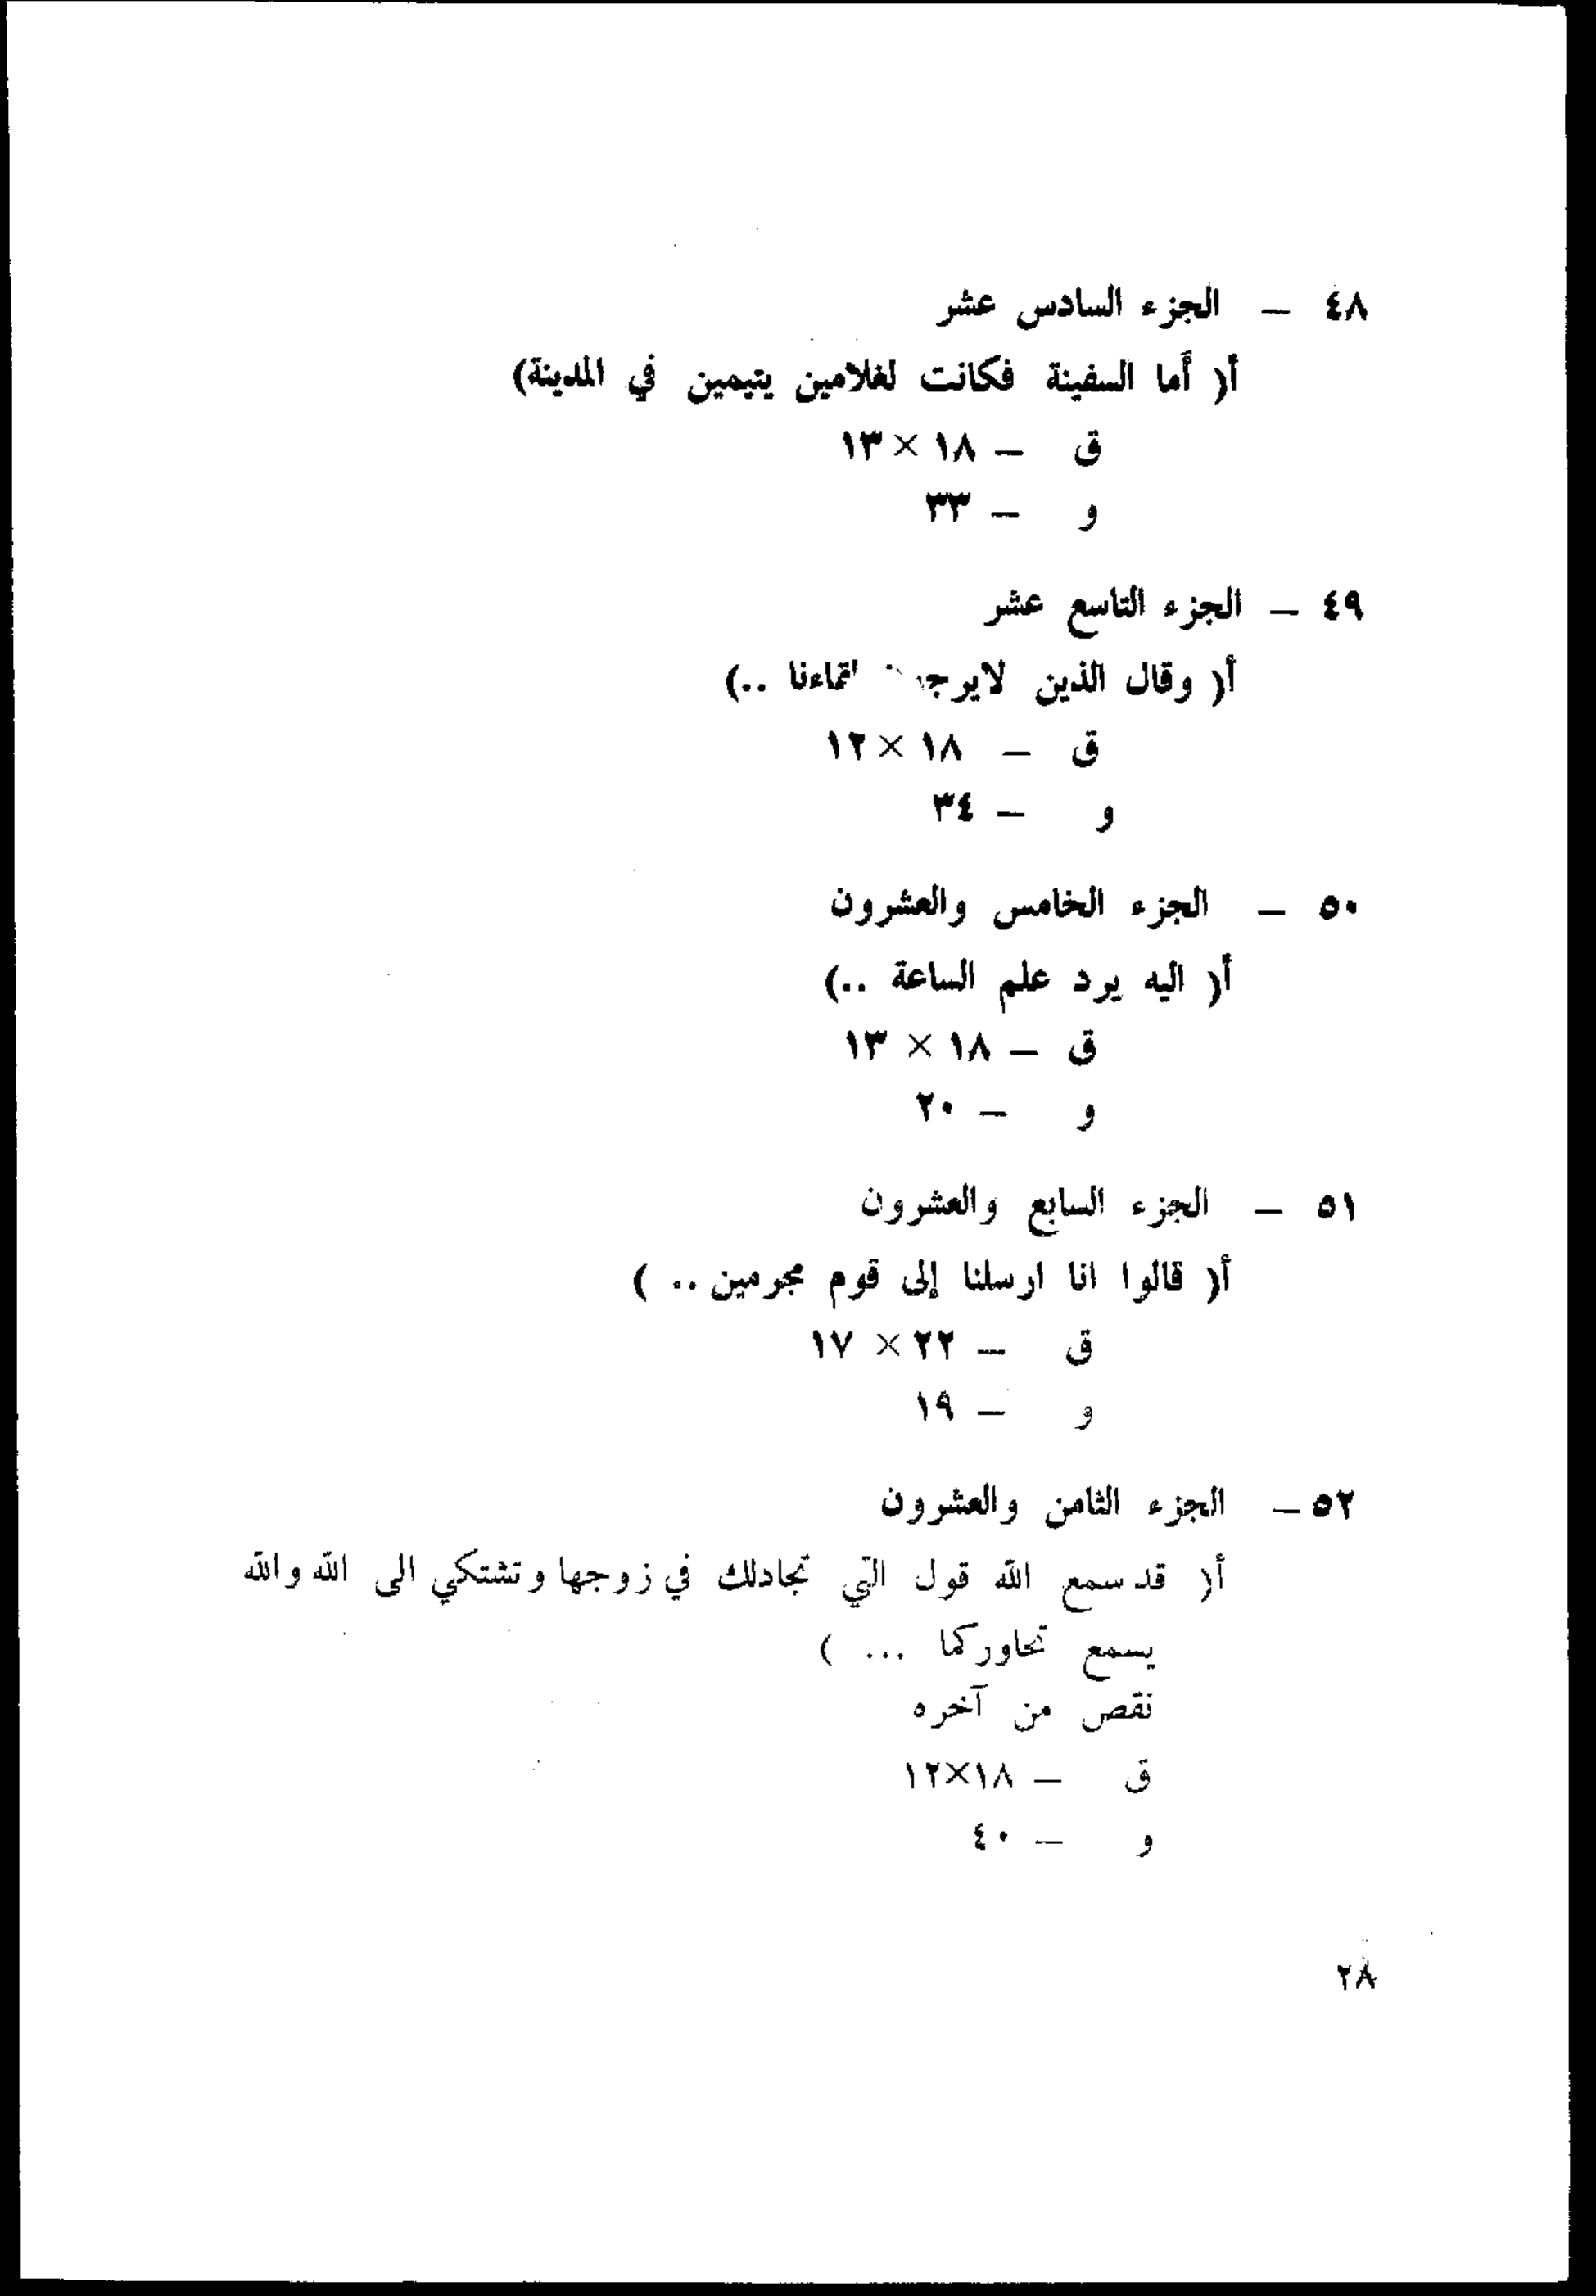 ٤٨ – الجزء السادس عشر
أ( أما السفينة فكانت لغلامين يتيمين في المدينة)
ق – ١٨ × ١٣
و – ٣٣
٤٩ – الجزء التاسع عشر
أ( وقال الذين لايرجو ..)
ق – ١٨ × ١٢
و – ٣٤
٥٠ – الجزء الخامس والعشرون
أ( اليه يرد علم الساعة ..)
ق – ١٨ × ١٣
و – ٢٠
٥١ – الجزء السابع والعشرون
أ( قالوا انا ارسلنا إلى قوم مجرمين .. )
ق – ٢٢ × ١٧
و – ١٩
٥٢ – الجزء الثامن والعشرون
أ( قد سمع الله قول التي تجادلك في زوجها وتشتكي الى الله والله
يسمع تحاوركما ... )
نقص من آخره
ق – ١٨×١٢
و – ٤٠
٢٨